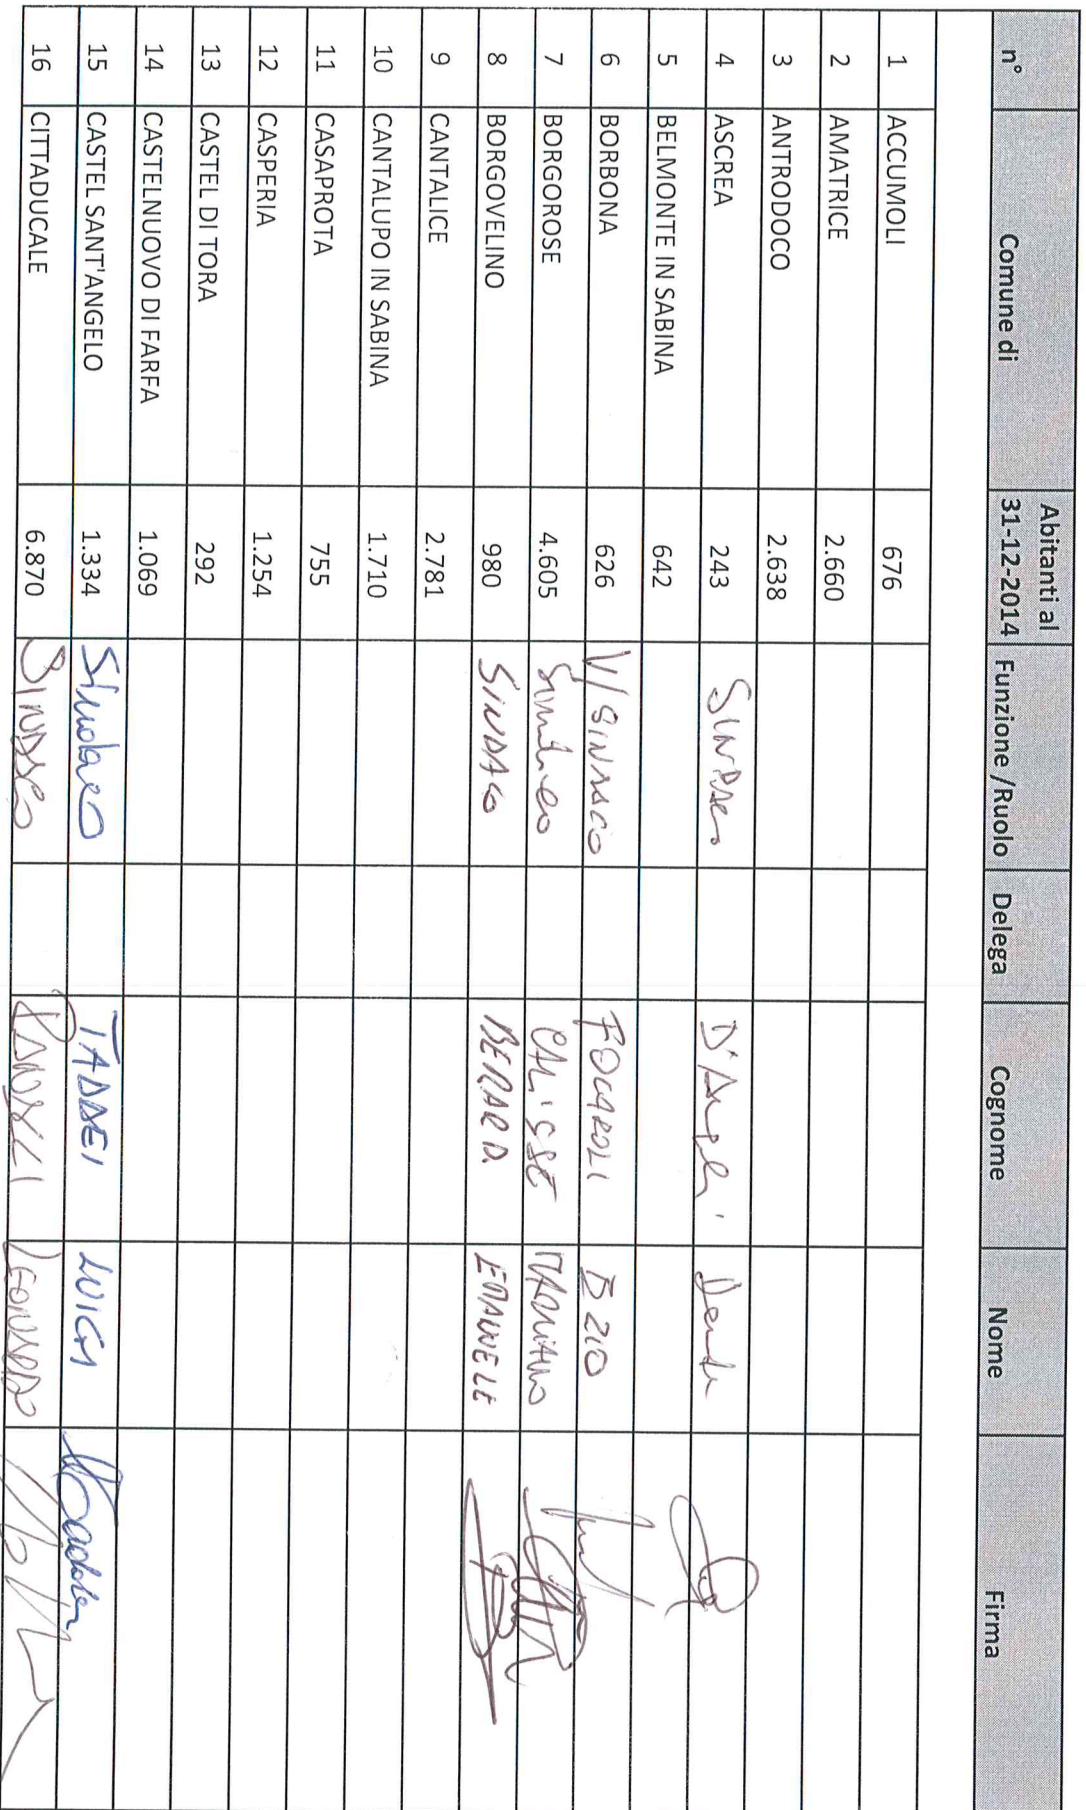 n° Comune di Abitanti al 31-12-2014 Funzione /Ruolo Delega Cognome Nome Firma
1 ACCUMOLI 676
2 AMATRICE 2.660
3 ANTRODOCO 2.638
4 ASCREA 243 SINDACO D'Angeli Dante
5 BELMONTE IN SABINA 642
6 BORBONA 626 V/SINDACO
7 BORGOROSE 4.605 Sindaco CALISSE MARIANO
8 BORGOVELINO 980 SINDACO BERARDI EMANUELE
9 CANTALICE 2.781
10 CANTALUPO IN SABINA 1.710
11 CASAPROTA 755
12 CASPERIA 1.254
13 CASTEL DI TORA 292
14 CASTELNUOVO DI FARFA 1.069
15 CASTEL SANT'ANGELO 1.334 Sindaco TADDEI LUIGI Taddei
16 CITTADUCALE 6.870 SINDACO RANALLI LEONARDO